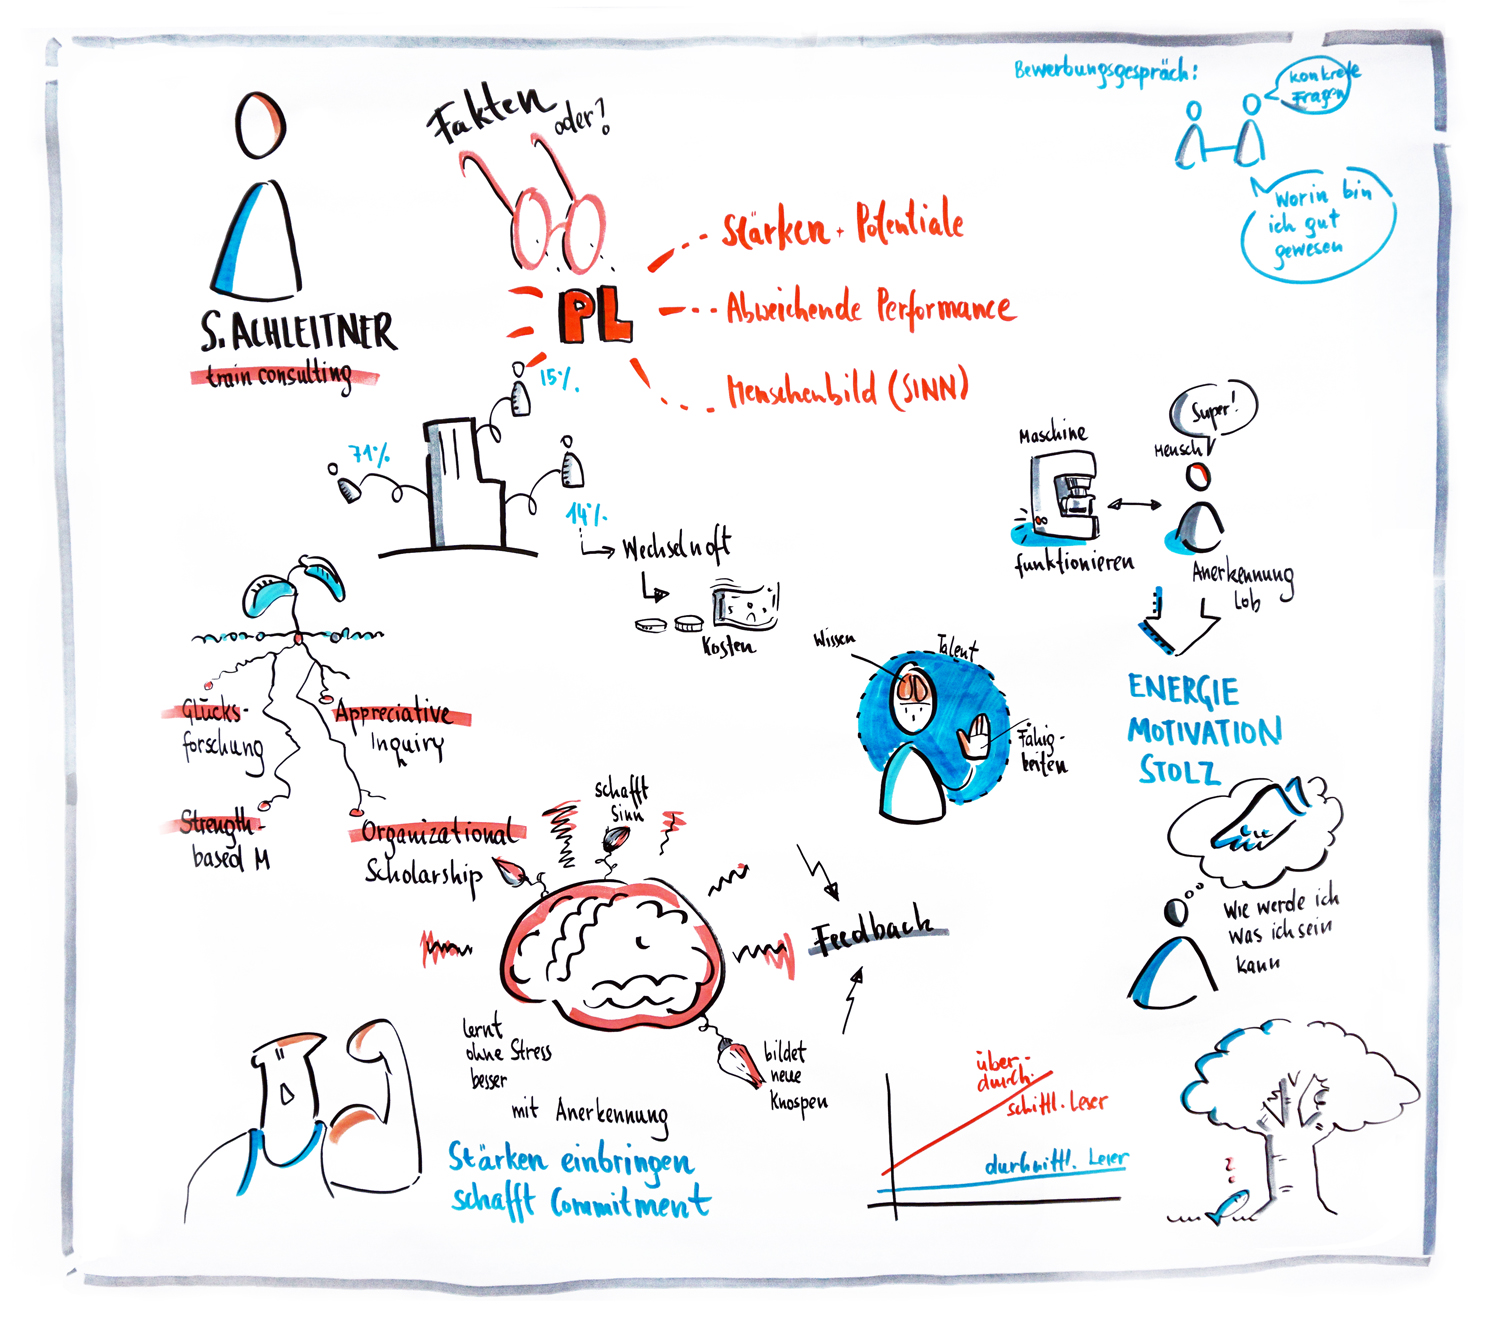 Bewerbungsgespräch:
konkrete
Fragen
Worin bin
ich gut
gewesen
Fakten
oder?!
S. ACHLEITNER
train consulting
PL
Stärken + Potentiale
Abweichende Performance
Menschenbild (SINN)
15%
71%
14%
Wechseln oft
Kosten
Maschine
funktionieren
Super!
Mensch
Anerkennung
Lob
ENERGIE
MOTIVATION
STOLZ
Wissen
Talent
Fähig-
keiten
Glücks-
forschung
Appreciative
Inquiry
Strength-
based M
Organizational
Scholarship
schafft
Sinn
Feedback
lernt
ohne Stress
besser
mit Anerkennung
bildet
neue
Knospen
Stärken einbringen
schafft Commitment
Wie werde ich
was ich sein
kann
über-
durch-
schittl. Leser
durhnittl. Leser
??